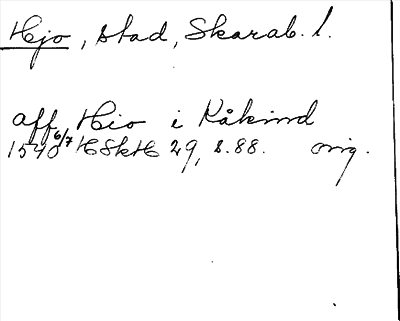 Hjo, stad, Skarab. l.
aff Hio i Kåkind
1540 6/7 HSkH 29, s. 88. orig.